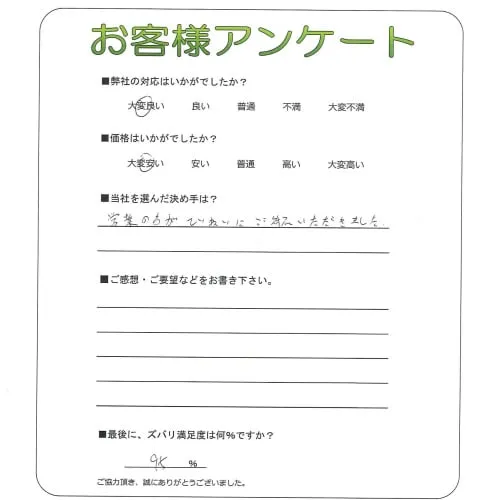 お客様アンケート
■弊社の対応はいかがでしたか？
大変良い 良い 普通 不満 大変不満
■価格はいかがでしたか？
大変安い 安い 普通 高い 大変高い
■当社を選んだ決め手は？
営業の方がていねいにご対応いただきました.
■ご感想・ご要望などをお書き下さい。
■最後に、ズバリ満足度は何％ですか？
95 ％
ご協力頂き、誠にありがとうございました。